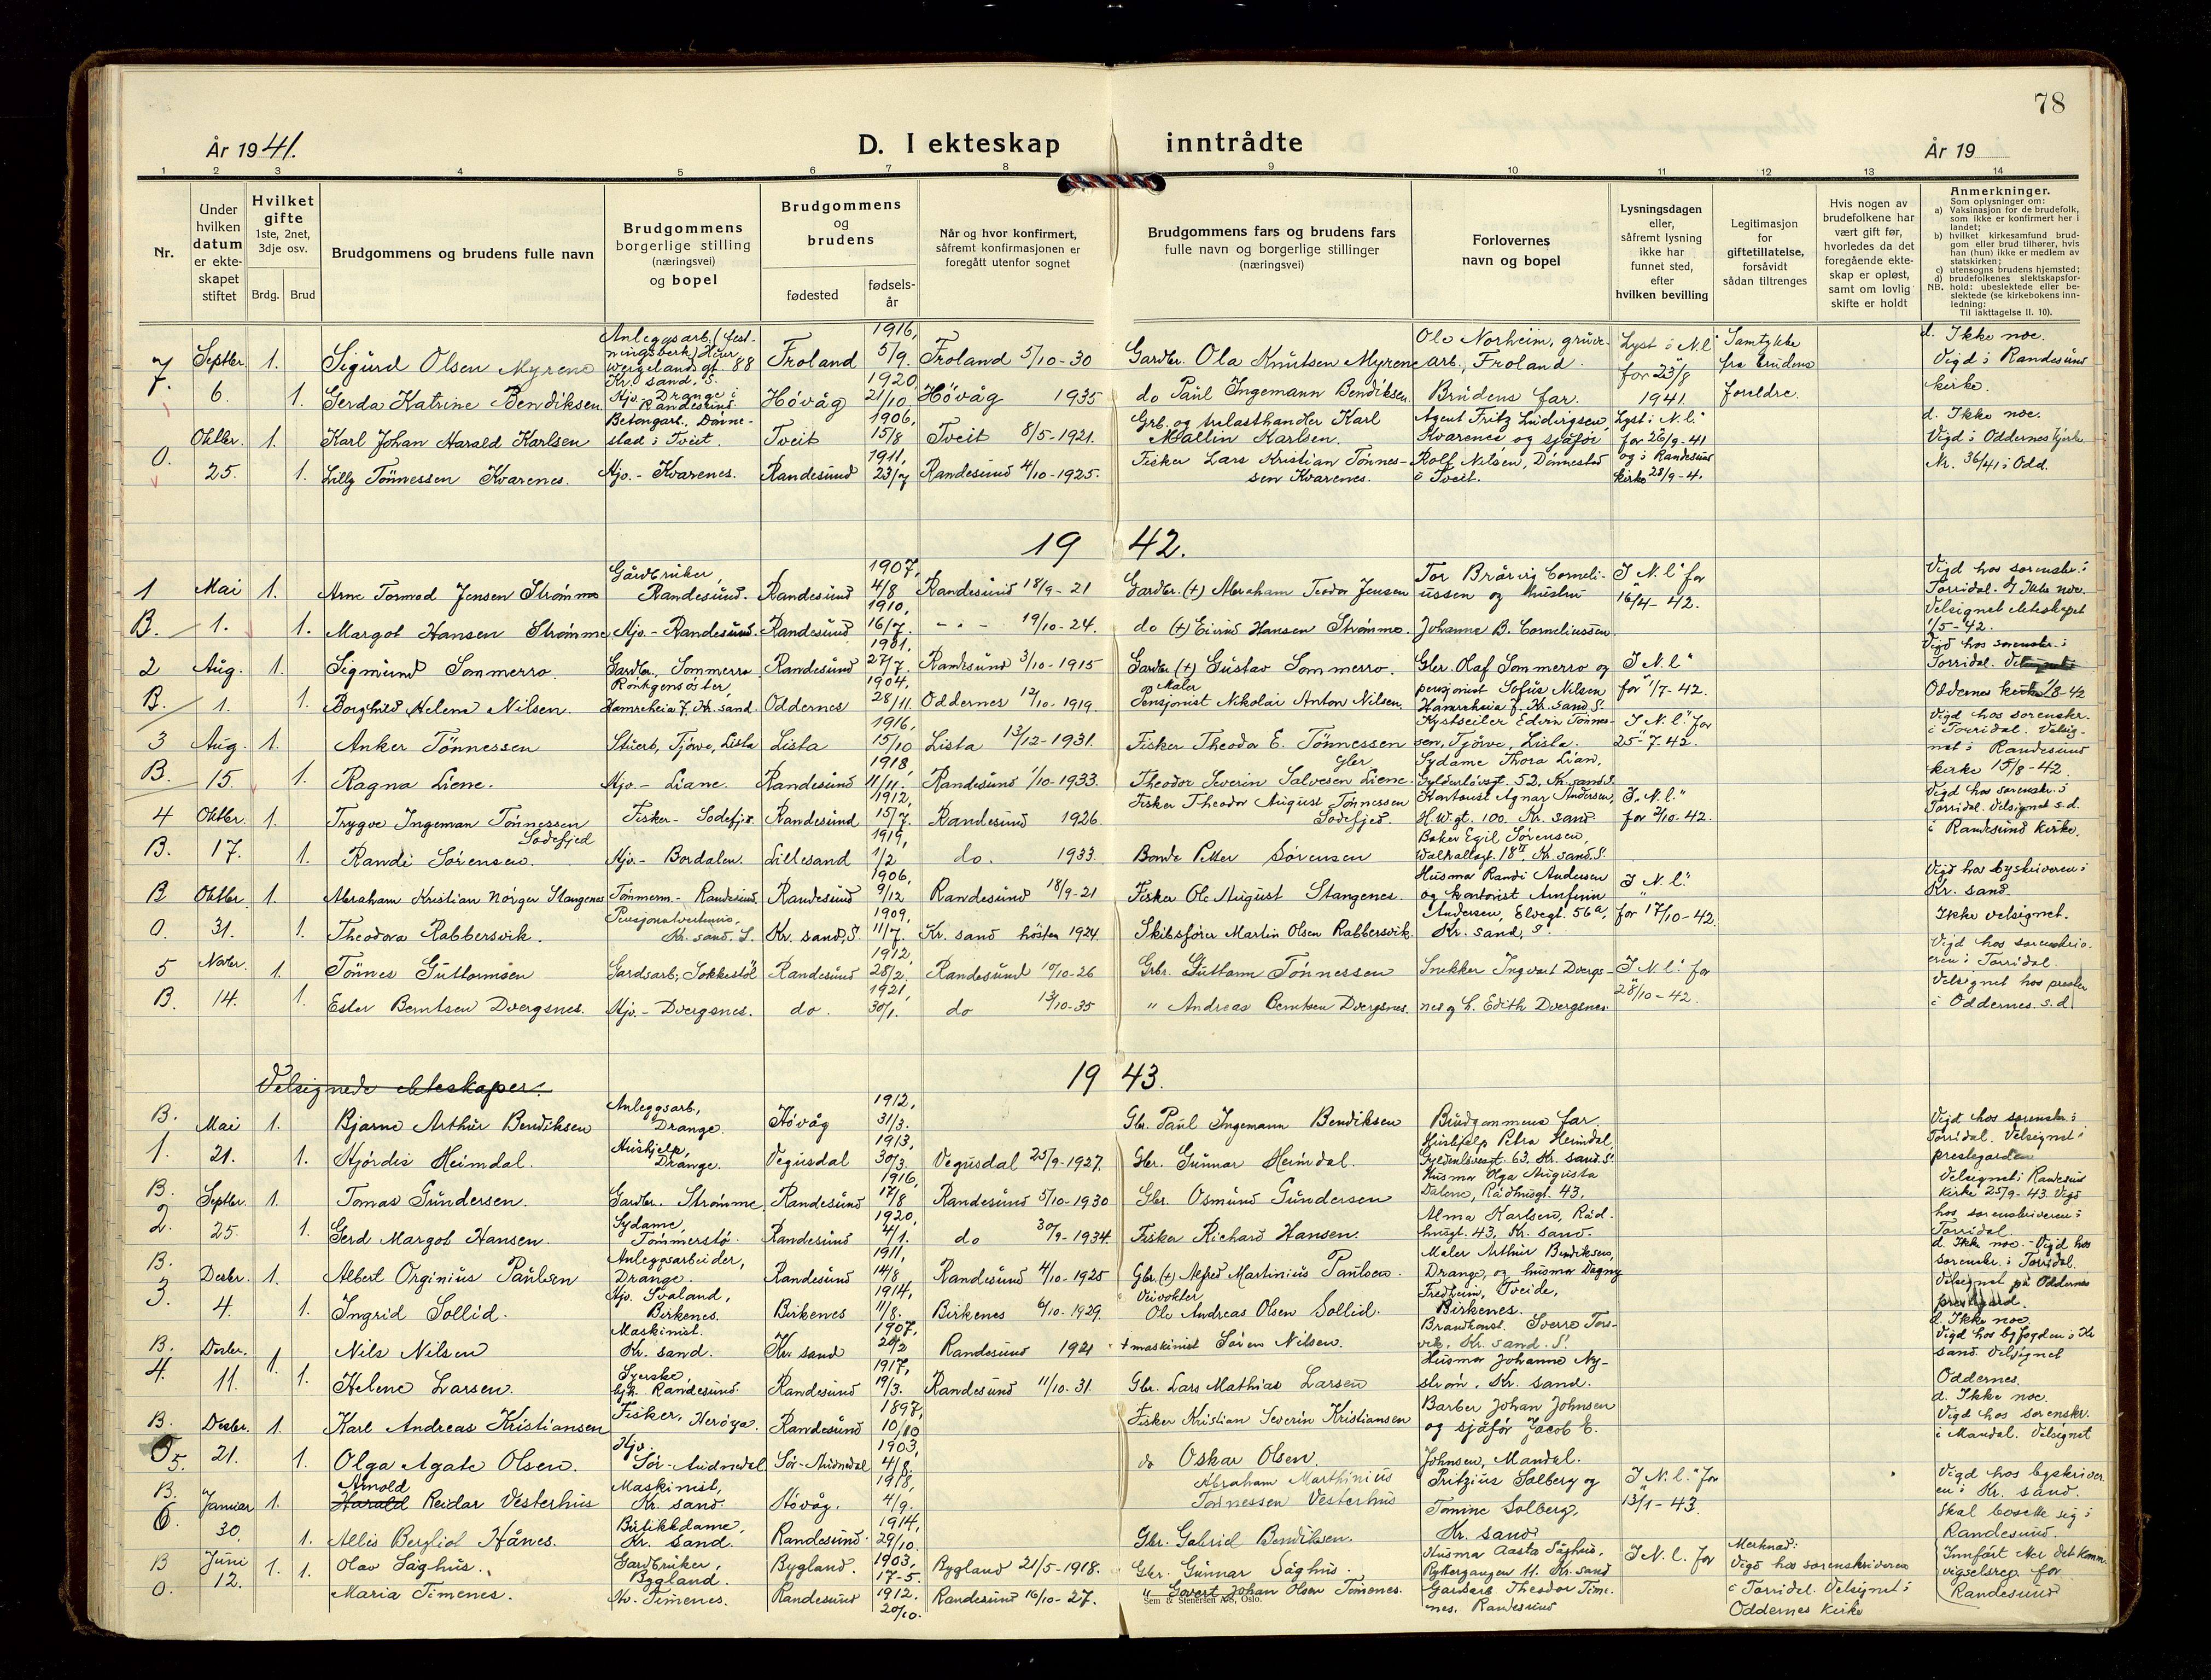 78
År 1941.
D. I ekteskap inntrådte
År 19
1 2 3 4 5 6 7 8 9 10 11 12 13 14
Nr.
Under hvilken datum er ekteskapet stiftet
Hvilket gifte 1ste, 2net, 3dje osv.
Brdg. Brud
Brudgommens og brudens fulle navn
Brudgommens borgerlige stilling (næringsvei) og bopel
Brudgommens og brudens
fødested
fødselsår
Når og hvor konfirmert, såfremt konfirmasjonen er foregått utenfor sognet
Brudgommens fars og brudens fars fulle navn og borgerlige stillinger (næringsvei)
Forlovernes navn og bopel
Lysningsdagen eller, såfremt lysning ikke har funnet sted, efter hvilken bevilling
Legitimasjon for giftetillatelse, forsåvidt sådan tiltrenges
Hvis nogen av brudefolkene har vært gift før, hvorledes da det foregående ekteskap er opløst, samt om lovlig skifte er holdt
Anmerkninger.
Som oplysninger om:
a) Vaksinasjon for de brudefolk, som ikke er konfirmert her i landet;
b) hvilket kirkesamfund brudgom eller brud tilhører, hvis han (hun) ikke er medlem av statskirken;
c) utensogns brudens hjemsted;
d) brudefolkenes slektskapsforhold: ubeslektede eller beslektede (se kirkebokens innledning:
NB. Til iakttagelse II. 10).
7. Septbr. 1. Sigurd Olsen Myrene Anleggsarb. (festningsverk) Henr. Wergelands gt. 88 Kr. sand, S. Froland 1916, 5/9. Froland 5/10-30 Gardbr. Ola Knutsen Myrene Ole Norheim, gruvearb., Froland. Lyst i N.l. for 23/8 1941 Samtykke fra brudens foreldre. d. Ikke noe. Vigd i Randesund kirke.
6. 1. Gerda Katrine Bendiksen Hjv. Drange i Randesund. Høvåg 1920 21/10 Høvåg 1935 do Paul Ingemann Bendiksen Brudens far.
O. Oktbr. 1. Karl Johan Harald Karlsen Betongarb. Dønnestad i Tveit. Tveit 1906, 15/8 Tveit 8/5-1921. Grb. og trelasthandler Karl Mallin Karlsen. Agent Fritz Ludvigsen, Kvarenes og sjåfør Rolf Nilsen, Dønnestad i Tveit. Lyst i N.l. for 26/9-41 og i Randesund kirke 28/9-4. d. Ikke noe. Vigd i Oddernes kirke. Nr. 36/41 i Odd.
25. 1. Lilly Tönnessen Kvarenes. Hjv. - Kvarenes. Randesund 1911, 23/7 Randesund 4/10-1925. Fisker Lars Kristian Tønnessen Kvarenes.
19 42.
1 Mai 1. Arne Tormod Jensen Strømme Gårdbruker, Randesund. Randesund 1907, 4/8 Randesund 18/9-21 Gardbr. (+) Abraham Teodor Jensen Tor Brårvig Corneliussen og hustru Johanne B. Corneliussen. I "N.l" for 16/4-42. Vigd hos sorenskr. i Torridal. d/ Ikke noe. Velsignet ekteskapet 1/5-42.
B. 1. 1. Margot Hansen Strømme Hjv. - Randesund. Randesund 1910, 16/7. - " - 19/10-24. do (+) Eivind Hansen Strømme.
2 Aug. 1. Sigmund Sommerro. Gardbr., Sommerro Randesund 1901, 27/7. Randesund 3/10-1915 Gardbr. (+) Gustav Sommerro. Gbr. Olaf Sommerro og pensjonist Sofus Nilsen Hamreheia 7. Kr. sand S. I "N.l" for 1/7-42. Vigd hos sorenskr. i Torridal. Oddernes kirke 1/8-42
B. 1. 1. Borghild Helene Nilsen. Røntgensøster, Hamreheia 7, Kr. sand. Oddernes 1904, 28/11. Oddernes 12/10-1919. Maler Pensjonist Nikolai Anton Nilsen.
3 Aug. 1. Anker Tönnessen Stuert, Tjørve, Lista Lista 1916, 15/10 Lista 13/12-1931. Fisker Theodor E. Tönnessen Kystseiler Edvin Tønnessen, Tjørve, Lista. I "N.l." for 25-7-42. Vigd hos sorenskr. i Torridal. Velsignet i Randesund kirke 15/8-42.
B. 15. 1. Ragna Liene. Hjv. - Liane. Randesund 1918, 11/11. Randesund 1/10-1933. Gbr Theodor Severin Salvesen Liene. Sydame Thora Lian, Gyldenløvsgt. 52, Kr. sand S.
4 Oktbr. 1. Trygve Ingeman Tønnessen Sodefjed Fisker - Sodefjed. Randesund 1912, 15/7. Randesund 1926. Fisker Theodor August Tønnessen Sodefjed. Kontorist Agnar Andersen, H.W.gt. 100. Kr. sand I "N.l." for 2/10-42. Vigd hos sorenskr. i Torridal. Velsignet s.d. i Randesund kirke.
B. 17. 1. Randi Sørensen. Hjv. - Bordalen. Lillesand 1919, 1/2 do. 1933. Bonde Petter Sørensen Baker Egil Sørensen, Valhallagt. 18 II. Kr. sand. S.
B Oktbr. 1. Abraham Kristian Nörger Stangenes Tømmerm. - Randesund. Randesund 1906, 9/12 Randesund 18/9-21 Fisker Ole August Stangenes. Husmo Randi Andersen og kontorist Arnfinn Andersen, Elvegt. 56a, Kr. sand, S. I "N.l." for 17/10-42. Vigd hos byskriveren i Kr. sand. Ikke velsignet.
O. 31. 1. Theodora Rabbersvik. Kr. sand. S. Kr. sand, S. 1909, 11/7. Kr. sand høsten 1924 Skibsfører Martin Olsen Rabbersvik.
5 Novbr. 1. Tönnes Guttormsen Gardsarb., Sokkestöl Randesund 1912, 28/2, Randesund 10/10-26 Grbr. Guttorm Tønnessen Snekker Ingvart Dvergsnes og h. Edith Dvergsnes I "N.l." for 28/10-42. Vigd hos sorenskriveren i Torridal. Velsignet hos presten i Oddernes. s.d.
B. 14. 1. Ester Berntsen Dvergsnes. Hjv. - Dvergsnes. do. 1921, 30/1. do 13/10-35 " Andreas Berntsen Dvergsnes.
Velsignede ekteskaper. 19 43.
B. Mai 1. Bjarne Arthur Bendiksen Anleggsarb, Drange. Høvåg 1912, 31/3. Gbr. Paul Ingemann Bendiksen Brudgommens far. Vigd hos sorenskr. i Torridal. Velsignet i prestegarden
1. 21. 1. Hjørdis Heimdal. Hushjelp, Drange. Vegusdal 1913, 30/3. Vegusdal 25/9-1927. Gbr. Gunnar Heimdal. Hushjelp Petra Heimdal, Gyldenløvesgt. 63. Kr. sand. S.
B. Septbr. 1. Tomas Gundersen. Gardbr. Strømme Randesund 1916, 17/8 Randesund 5/10-1930 Gbr. Osmund Gundersen Husmor Olga Augusta Dalene, Rådhusgt. 43, Velsignet i Randesund kirke 25/9-43. Vigd hos sorenskriveren i Torridal
2. 25. 1. Gerd Margot Hansen. Sydame, Tømmerstø. Randesund 1920, 4/1. do 30/9-1934. Fisker Richard Hansen. Alma Karlsen, Rådhusgt. 43, Kr. sand.
B. Desbr. 1. Albert Orginius Paulsen Anleggsarbeider, Drange. Randesund 1911, 14/8 Randesund 4/10-1925 Gbr. (+) Alfred Martinius Paulsen. Maler Arthur Bendiksen, Drange, og husmor Dagny Fredheim, Tveide, Birkenes. d. Ikke noe. - Vigd hos sorenskr. i Torridal. Velsignet på Oddernes prestgard.
3. 4. 1. Ingrid Sollid. Hjv. Svaland, Birkenes. Birkenes 1914, 11/8. Birkenes 6/10-1929. Veivokter Ole Andreas Olsen Sollid.
B. Desbr. 1. Nils Nilsen Maskinist. Kr. sand. Kr. sand 1907, 20/2 Randesund 1921 + maskinist Søren Nilsen. Brandkonst. Sverre Torsvik, Kr. sand. S. d. Ikke noe. Vigd hos byfogden i Kr sand. Velsignet Oddernes.
4. 11. 1. Helene Larsen. Syerske, Randesund. Randesund 1917, 19/3. Randesund 11/10-31. Gbr. Lars Mathias Larsen Husmor Johanne Nystrøm, Kr. sand.
B. Desbr. 1. Karl Andreas Kristiansen Fisker, Herøya. Randesund 1897, 10/10 Fisker Kristian Severin Kristiansen Barber Johan Johnsen og sjåfør Jacob E. Johnsen, Mandal. d. Ikke noe. Vigd hos sorenskr. i Mandal. Velsignet
5. 21. 1. Olga Agate Olsen. Hjv. Sør-Audnedal Sør-Audnedal 1903, 4/8. do Oskar Olsen.
B. 6. Januar 1. Arnold Harald Reidar Vesterhus Maskinist, Kr. sand. Høvåg. 1918, 4/9. Abraham Marthinius Tønnessen Vesterhus Fritzius Solberg og Tomine Solberg, Kr. sand I "N.l." for 13/1-43 Vigd hos byskriveren i Kr. sand. Skal bosette sig i Randesund.
30. 1. Allis Bergliot Hånes. Butikkdame, Kr. sand. Randesund. 1914, 29/10. Gbr. Gabriel Bendiksen.
B Juni 1. 1. Olav Saghus. Gardbruker, Bygland. Bygland. 1903, 17-5. Bygland 21/5-1918. Gbr. Gunnar Saghus. Husmo Aasta Saghus, Ryttergangen 11. Kr. sand Gardarb Theodor Timenes, Randesund I N.l. for Merknad: Vigd hos sorenskriveren i Torridal. Velsignet i Oddernes kirke Innført etter det komm. vigselsreg. for Randesund
O. 12. Maria Timenes. Hv. Timenes. Randesund 1912. 20/10. Randesund 16/10-27. " Govert Johan Olsen Timenes.
Sem & Stenersen A/S, Oslo.